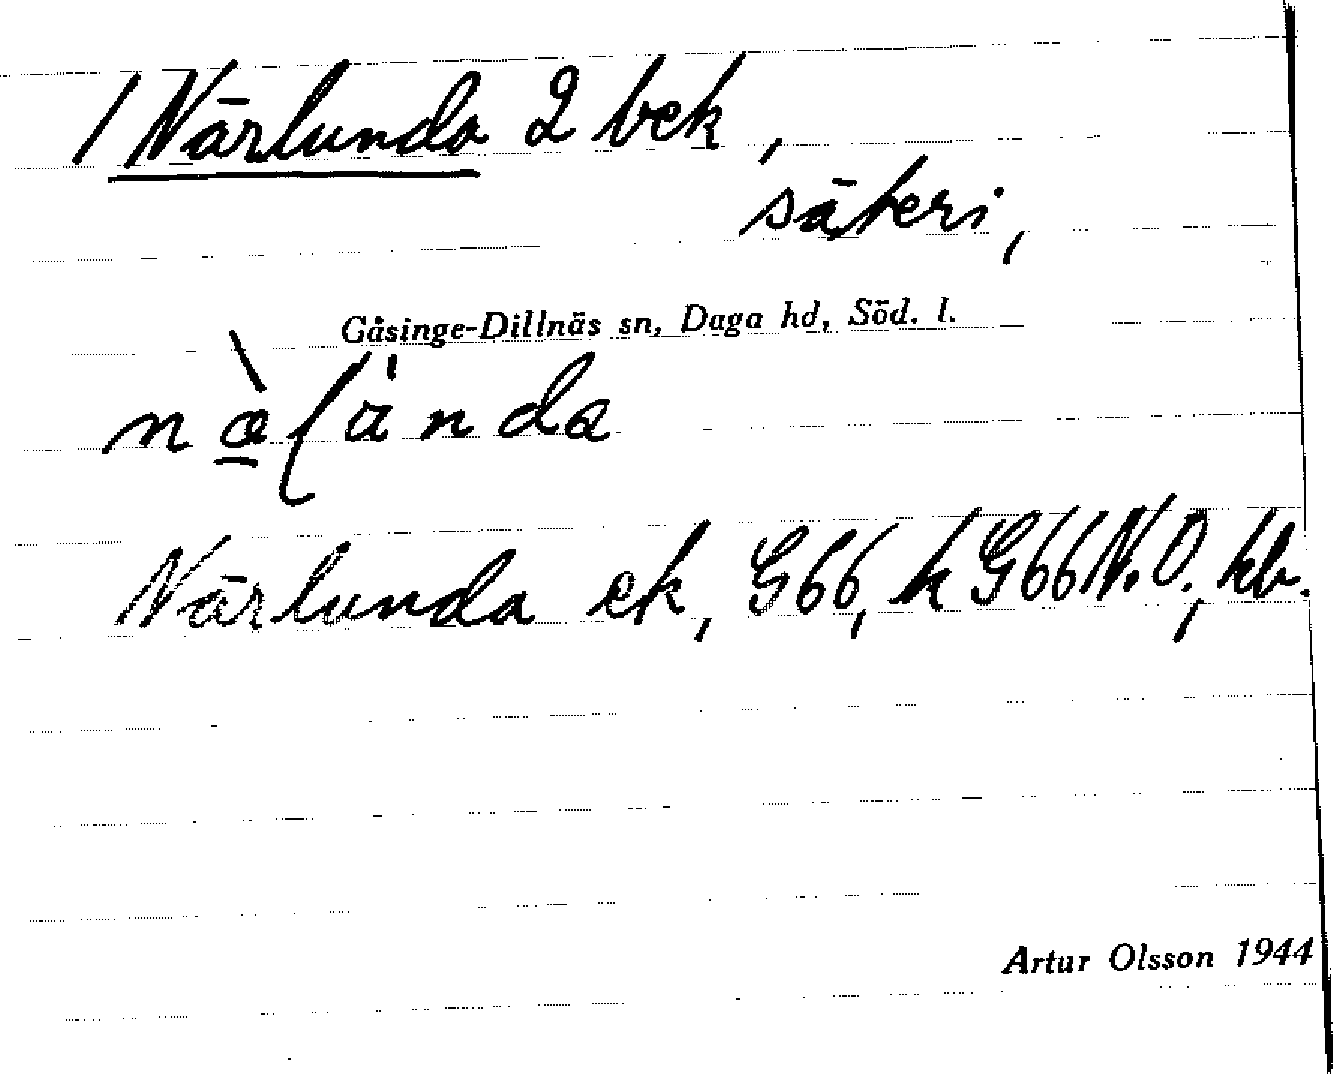 / Närlunda 2 bek,
säteri,
Gåsinge-Dillnäs sn, Daga hd, Söd. l.
Närlunda ek, G66, k G66 N.O., kb.
Artur Olsson 1944